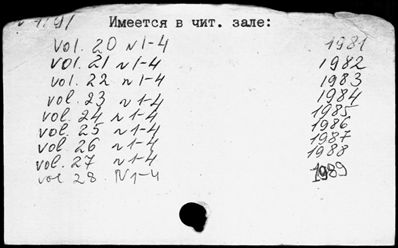 Имеется в чит. зале:
vol. 20 N 1-4 1981
vol. 21 N 1-4 1982
vol. 22 N 1-4 1983
vol. 23 N 1-4 1984
vol. 24 N 1-4 1985
vol. 25 N 1-4 1986
vol. 26 N 1-4 1987
vol. 27 N 1-4 1988
vol 28 N 1-4 1989